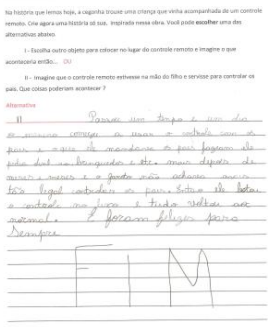 Na história que lemos hoje, a cegonha trouxe uma criança que vinha acompanhada de um controle
remoto. Crie agora uma história só sua, inspirada nessa obra. Você pode escolher uma das
alternativas abaixo.
I - Escolha outro objeto para colocar no lugar do controle remoto e imagine o que
aconteceria então... OU
II - Imagine que o controle remoto estivesse na mão do filho e servisse para controlar os
pais. Que coisas poderiam acontecer ?
Alternativa
II Passou um tempo e um dia
o menino começou a usar o controle com os
pais e o que ele mandava os pais faziam ele
pedia dinheiro brinquedos e etc. mas depois de
meses e meses e o garoto não achava mais
tão legal controlar os pais. Então ele botou
o controle no lixo e tudo voltou ao
normal. E foram felizes para
Sempre
FIM